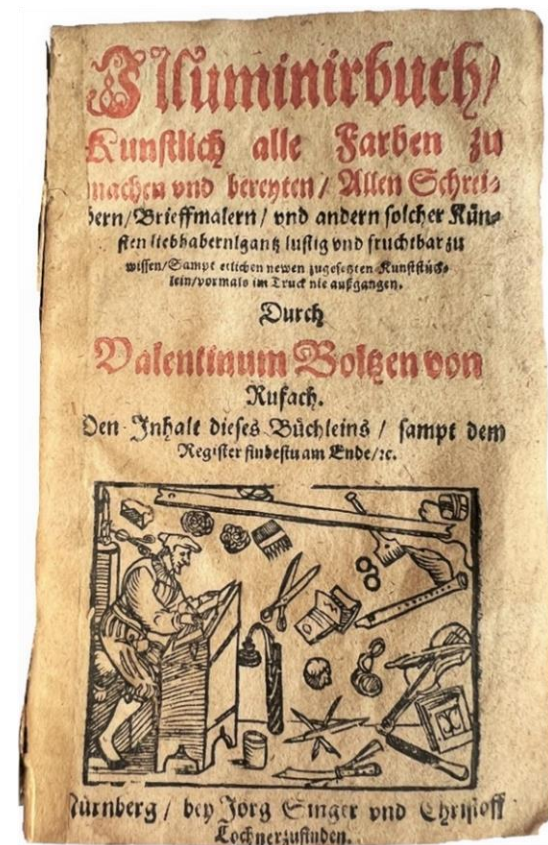 Illuminirbuch/
Kunstlich alle Farben zu
machen vnd bereyten / Allen Schrei⸗
bern/Brieffmalern / vnd andern solcher Kün⸗
sten liebhabern/gantz lustig vnd fruchtbar zu
wissen/Sampt etlichen newen zugesetzten Kunststück⸗
lein/vormals im Truck nie außgangen.
Durch
Valentinum Boltzen von
Rufach.
Den Inhalt dieses Büchleins / sampt dem
Register findestu am Ende/ꝛc.
Nürnberg / bey Jörg Singer vnd Christoff
Lochner zufinden.